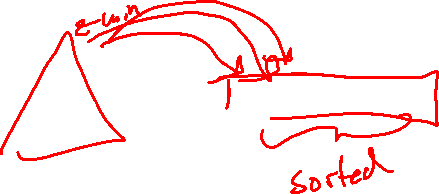 e-min
sorted